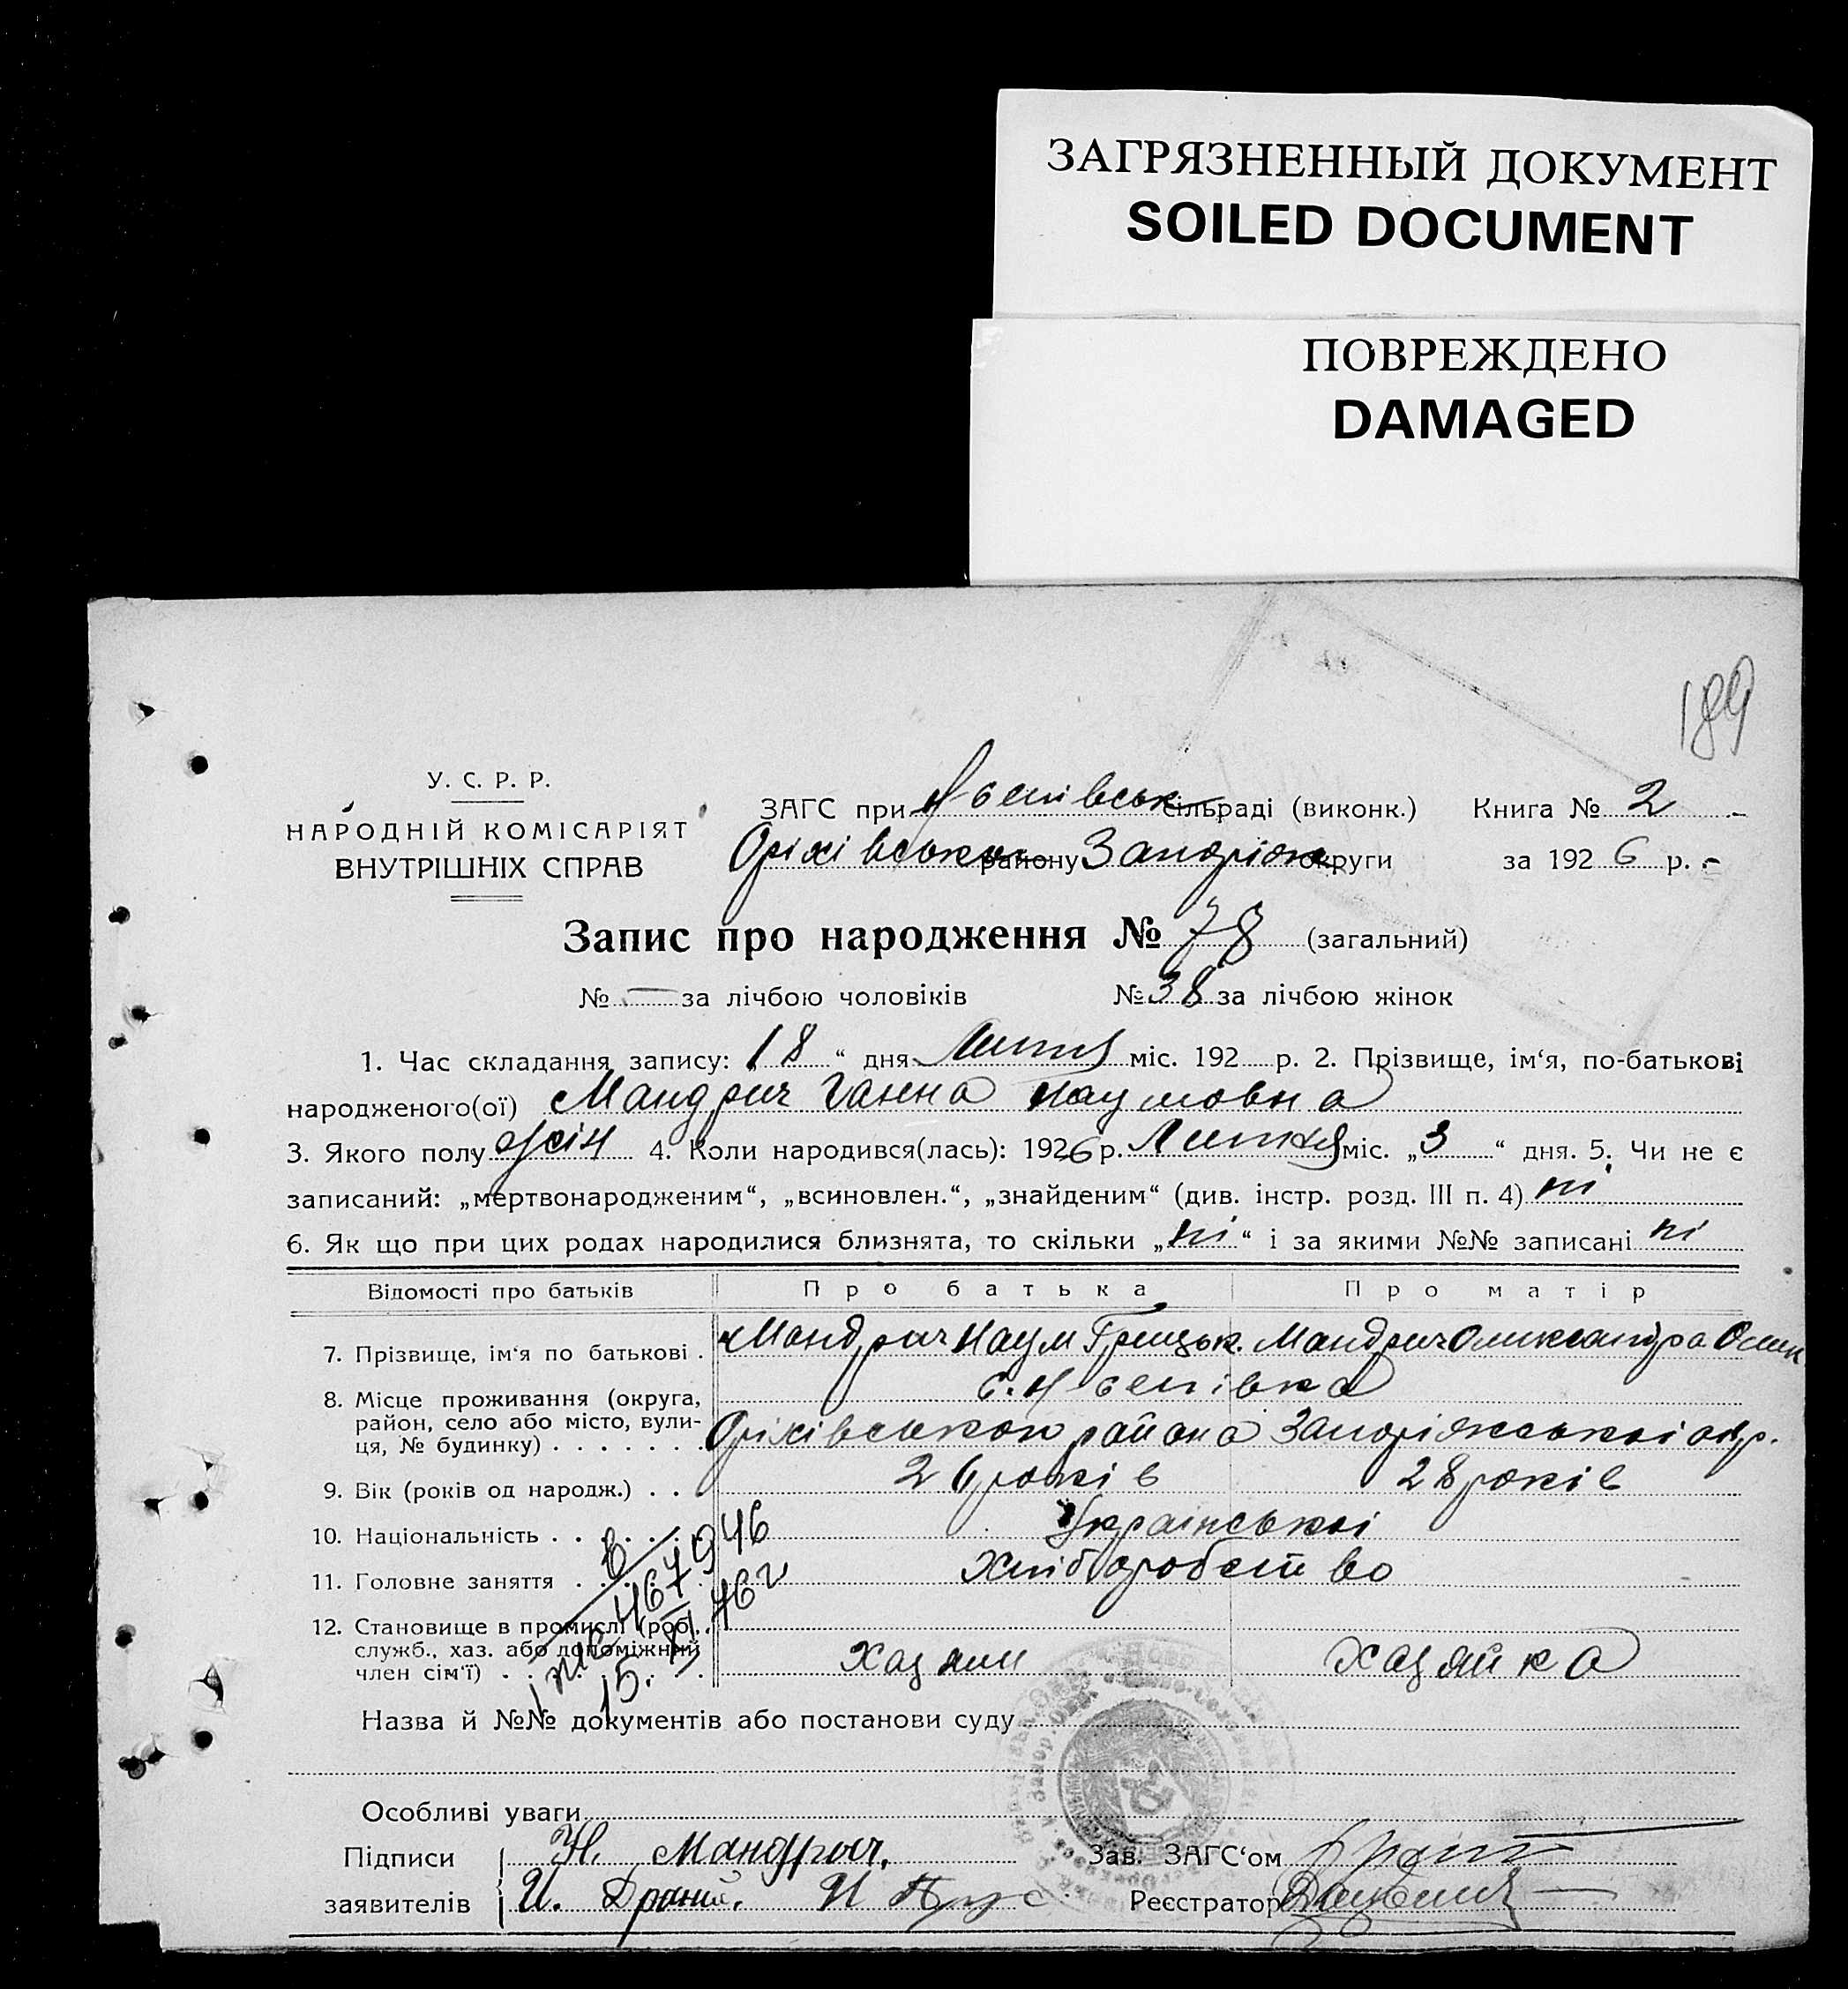 ЗАГРЯЗНЕННЫЙ ДОКУМЕНТ
SOILED DOCUMENT
ПОВРЕЖДЕНО
DAMAGED
189
У. С. Р. Р.
НАРОДНІЙ КОМІСАРІЯТ
ВНУТРІШНІХ СПРАВ
ЗАГС при сільраді (виконк.) Книга № 2
Оріхівсько району Запоріж округи за 1926 р.
Запис про народження № 78 (загальний)
№ — за лічбою чоловіків № 38 за лічбою жінок
1. Час складання запису: „18“ дня Липня міс. 192 р. 2. Прізвище, ім‘я, по-батькові
народженого(ої) Мандрич Ганна Наумовна
3. Якого полу жін 4. Коли народився(лась): 1926 р. Липня міс. „3“ дня. 5. Чи не є
записаний: „мертвонародженим“, „всиновлен.“, „знайденим“ (див. інстр. розд. III п. 4) ні
6. Як що при цих родах народилися близнята, то скільки „ні“ і за якими №№ записані ні
Відомості про батьків Про батька Про матір
7. Прізвище, ім‘я по батькові . Мандрич Наум Грицьк. Мандрич Олександра
8. Місце проживання (округа,
район, село або місто, вули-
ця, № будинку) . . . . . . . Оріхівського района Запоріжської окр.
9. Вік (років од народж.) . . . 26 років 28 років
10. Національність . . . . . . Української
11. Головне заняття . . . . . Хліборобство
12. Становище в промислі (роб.,
служб., хаз. або допоміжний
член сім‘ї) . . . . . . . Хазяин Хазяйка
15. XI 46 г
Назва й №№ документів або постанови суду
Особливі уваги
Підписи Н. Мандрич. Зав. ЗАГС‘ом
заявителів И. Реєстратор